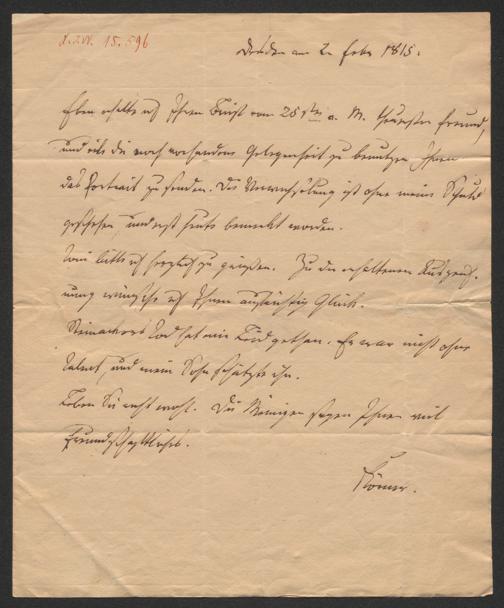 Dresden am 2. Febr. 1815.
Eben erhalte ich Ihren Brief vom 25sten v. M. theurer Freund,
und eile die noch vorhandene Gelegenheit zu benutzen Ihnen
das Portrait zu senden. Die Verwechselung ist ohne meine Schuld
geschehen, und erst heute bemerkt worden.
bitte ich herzlich zu grüßen. Zu der erhaltenen
wünsche ich Ihnen aufrichtig Glück.
Tod hat mir Leid gethan. Er war nicht ohne
Talent, und mein Sohn schätzte ihn.
Leben Sie recht wohl. Die Meinigen sagen Ihnen viel
Freundschaftliches.
Körner.